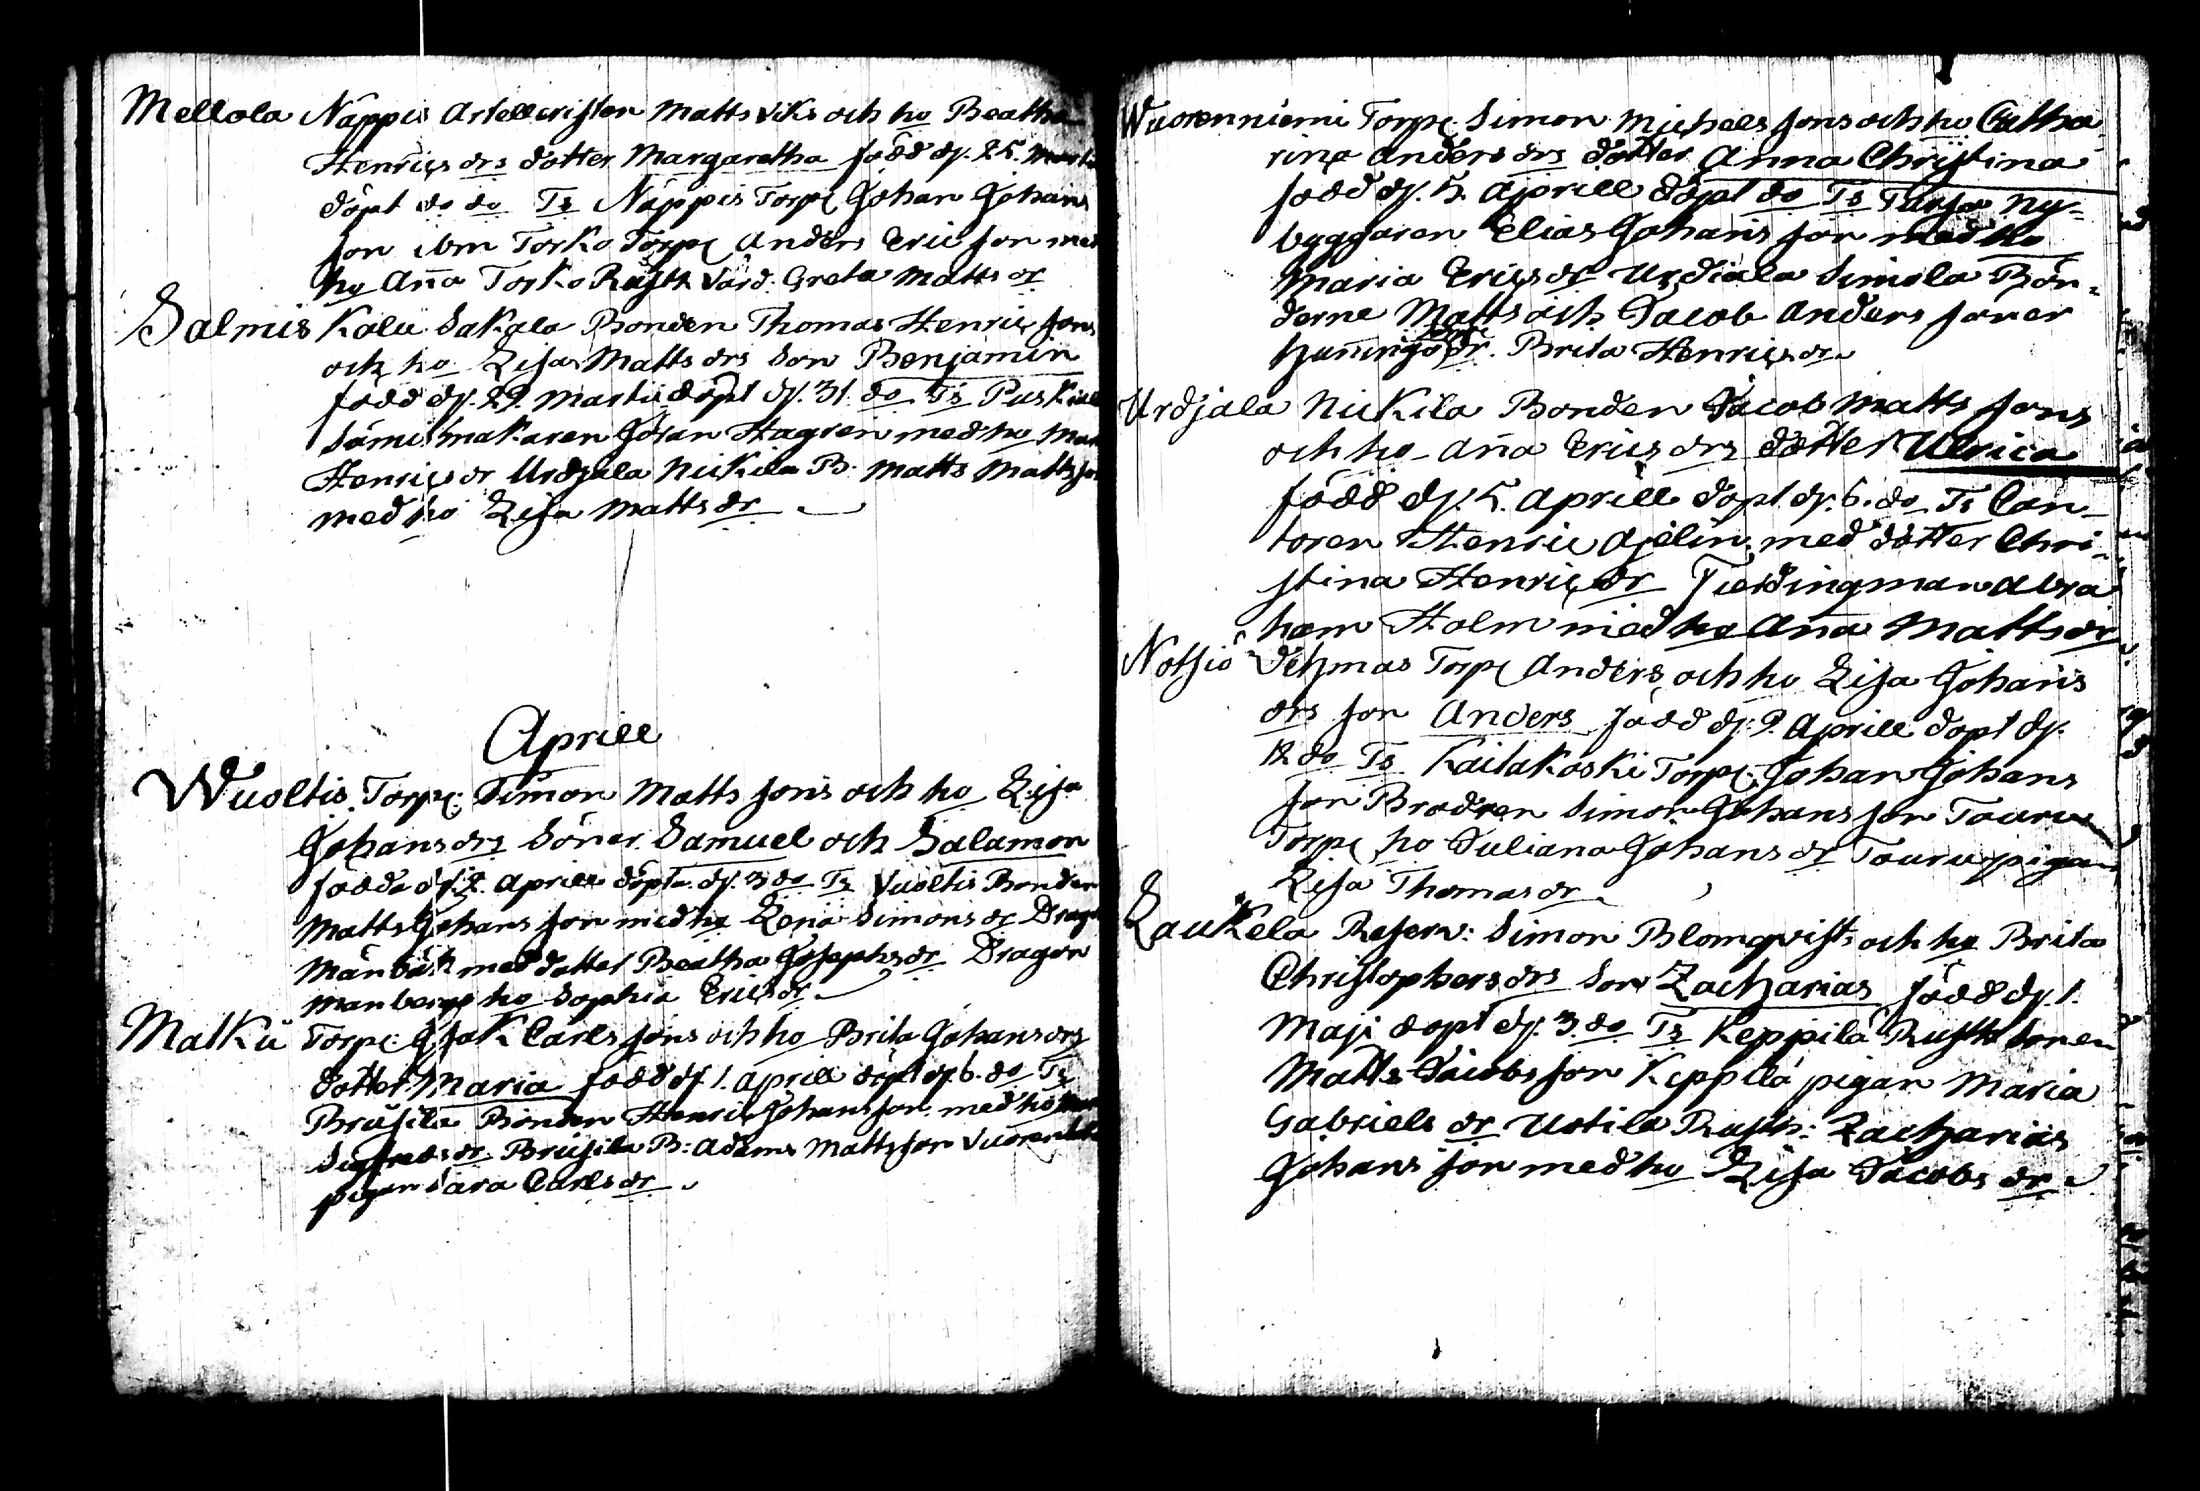 Mellola Näppis Artelleristen Matts Viks och ho Beatha
Henrics drs dotter Margaretha född dḥ. 25. Marti
döpt do do Ts Näppis Torp Johan Johans
son ibm Torko Torp Anders Eric son med
ho Anna Torko Rustt Värd: Greta Matts dr
Salmis Kolu Sakala Bonden Thomas Henrics sons
och ho Lisa Matts drs Son Benjamin
född d. 29. Martii döpt d. 31. do Ts
makaren Göran Hagren med ho
Henrics dr Urdjala Nickila B. Matts Mattsson
med ho Lisa Matts dr
Aprill
Wuoltis Torp: Simon Matts sons och ho Lisa
Johans drs Söner Samuel och Salamon
födde d. 2. Aprill döpte d. 3 do Ts Vuoltis Bonden
Matts Johans son med ho Lena Simons dr Drag
med dotter Beatha Josephs dr Dragon
Manberg ho Sophia Erics dr
Matku Torp: Isak Carls sons och ho Brita Johans drs
dotter Maria född d. 1. Aprill döpt d. 6. do Ts
Brusila Bonden Henric Johansson med ho
Sigfreds dr Brusila B: Adam Mattsson
pigan Sara Carls dr
Wuorenniemi Torp: Simon Michels sons och ho Catha
rina Anders drs dotter Anna Christina
född d. 5. Aprill döpt do Ts Tursa Ny-
byggaren Elias Johans son med ho
Maria Erics dr Urdiala Simola Bön-
derne Matts och Jacob Anders söner
dr. Brita Henrics dr
Urdjala Nickila Bonden Jacob Matts sons
och ho Anna Erics drs dotter Ulrica
född d. 5. Aprill döpt d. 6. do Ts Can-
toren Henric Ajelin med dotter Chri-
stina Henrics dr Fierdingsman Abra
ham Holm med ho Anna Matts dr
Notsiö Torp Anders och ho Lisa Johans
drs son Anders född d. 9. Aprill döpt d.
12 do Ts Kailakoski Torp: Johan Johans
son Brodren Simon Johans son Tauru
Torp ho Juliana Johans dr Tauru pigan
Lisa Thomas dr
Laukela Reserv: Simon Blomqvists och ho Brita
Christophers drs Son Zacharias född d. 1.
Maji döpt d. 3. do Ts Keppilä Rustt Sonen
Matts Jacobs son Keppilä pigan Maria
Gabriels dr Uotila Rustt: Zacharias
Johans son med ho Lisa Jacobs dr